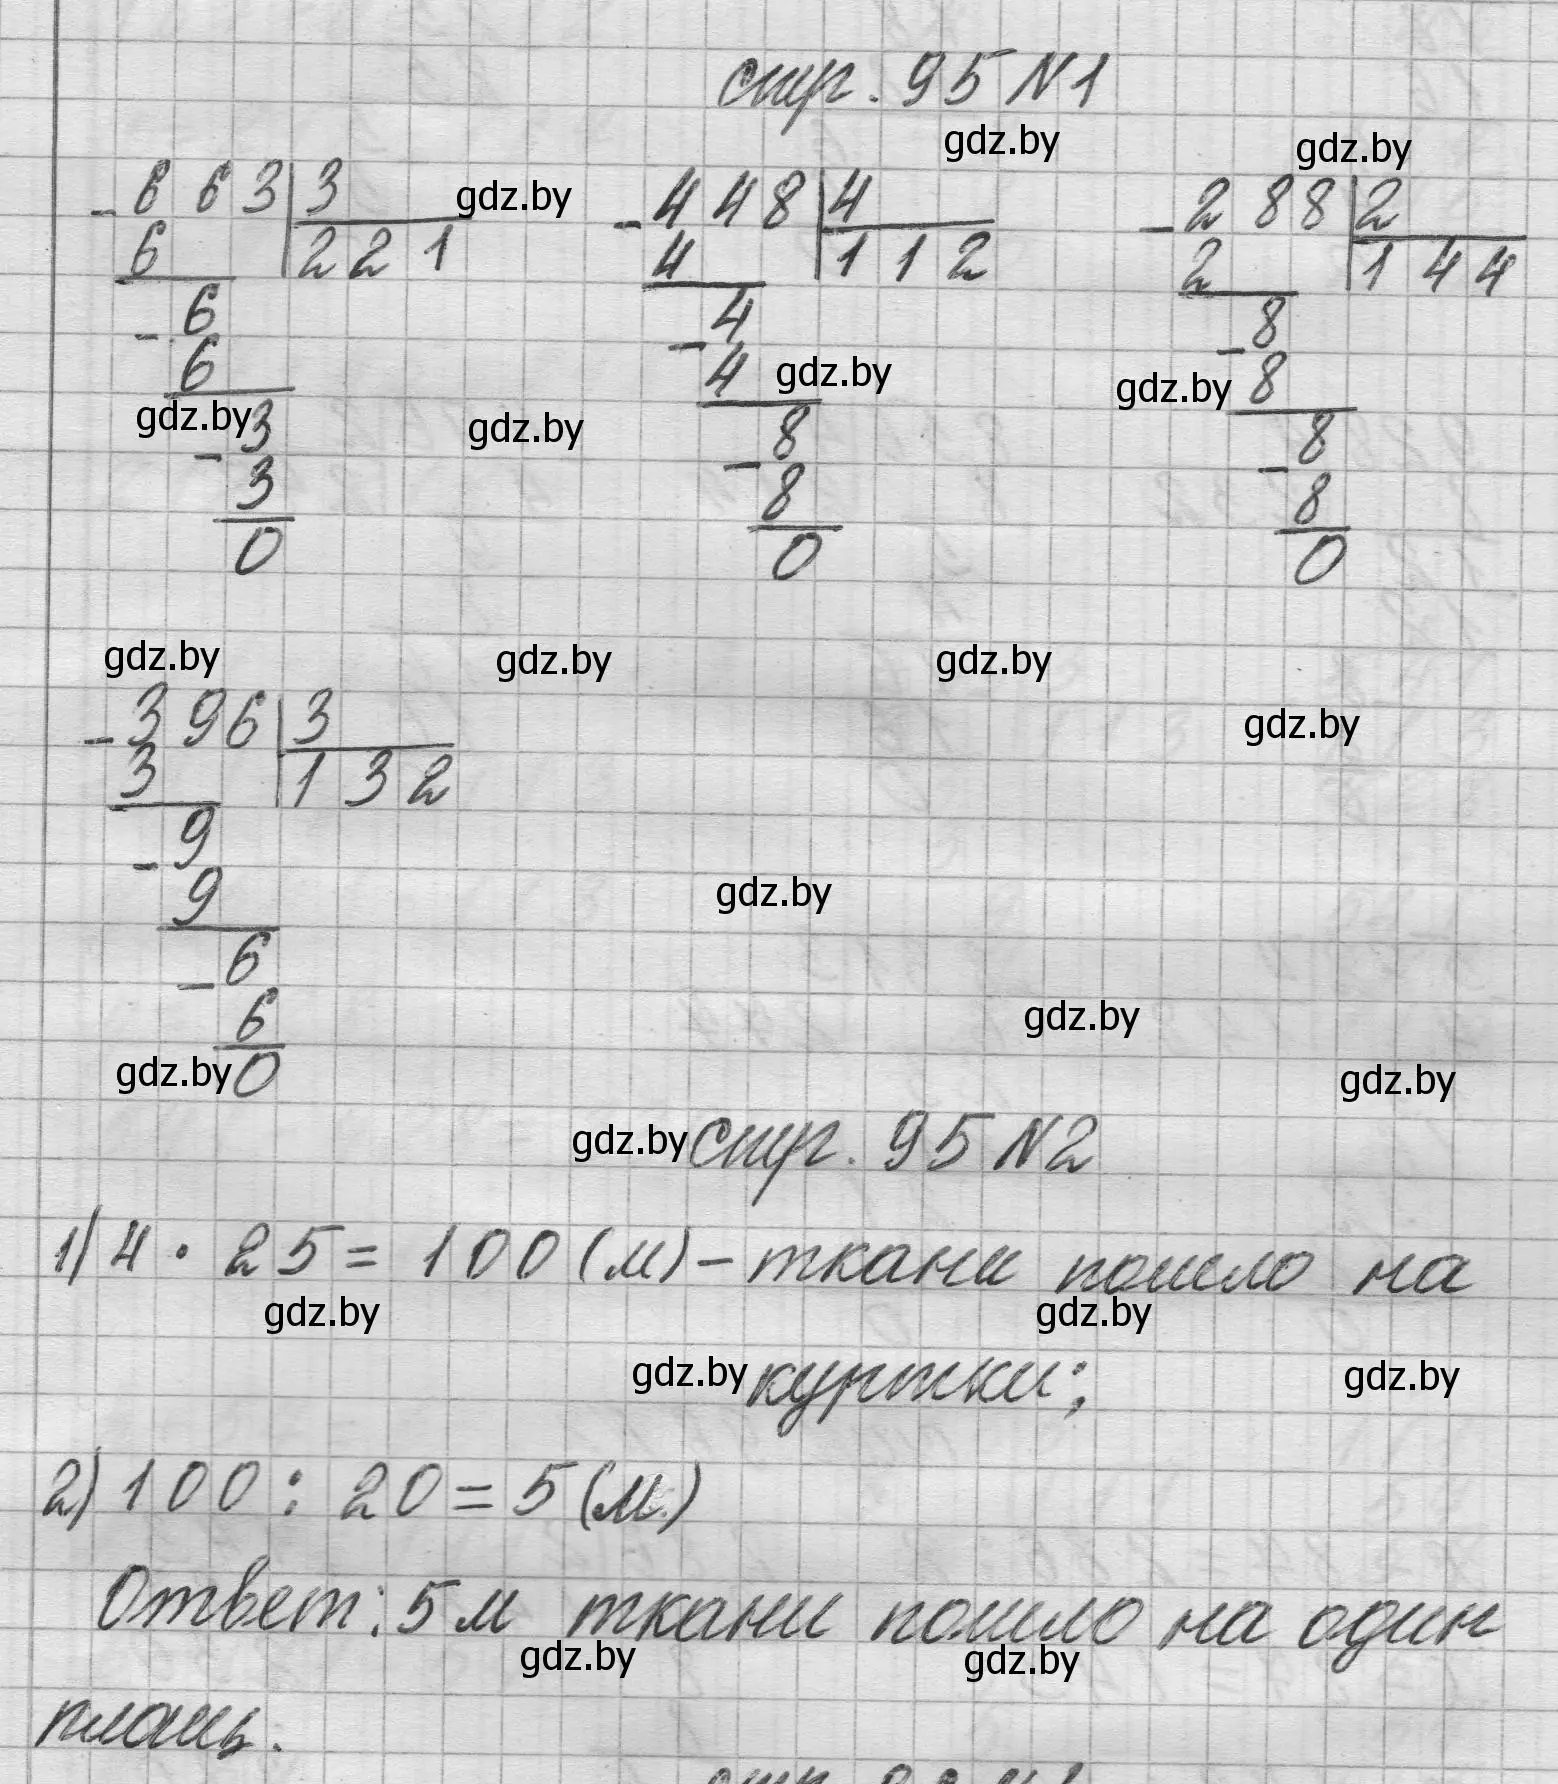 стр. 95 N1
gdz.by gdz.by
- 663 | 3 gdz.by - 448 | 4 - 288 | 2
6 221 4 112 2 144
- 6 - 4 - 8
6 4 gdz.by gdz.by 8
gdz.by - 3 gdz.by - 8 - 8
3 8 8
0 0 0
gdz.by gdz.by gdz.by
- 396 | 3 gdz.by
3 132
- 9
9 gdz.by
- 6
6 gdz.by
gdz.by 0 gdz.by
gdz.by стр. 95 N2
1) 4 · 25 = 100 (м) - ткани пошло на
gdz.by gdz.by
gdz.by куртки; gdz.by
2) 100 : 20 = 5 (м.)
Ответ: 5 м ткани пошло на один
gdz.by gdz.by
плащ.